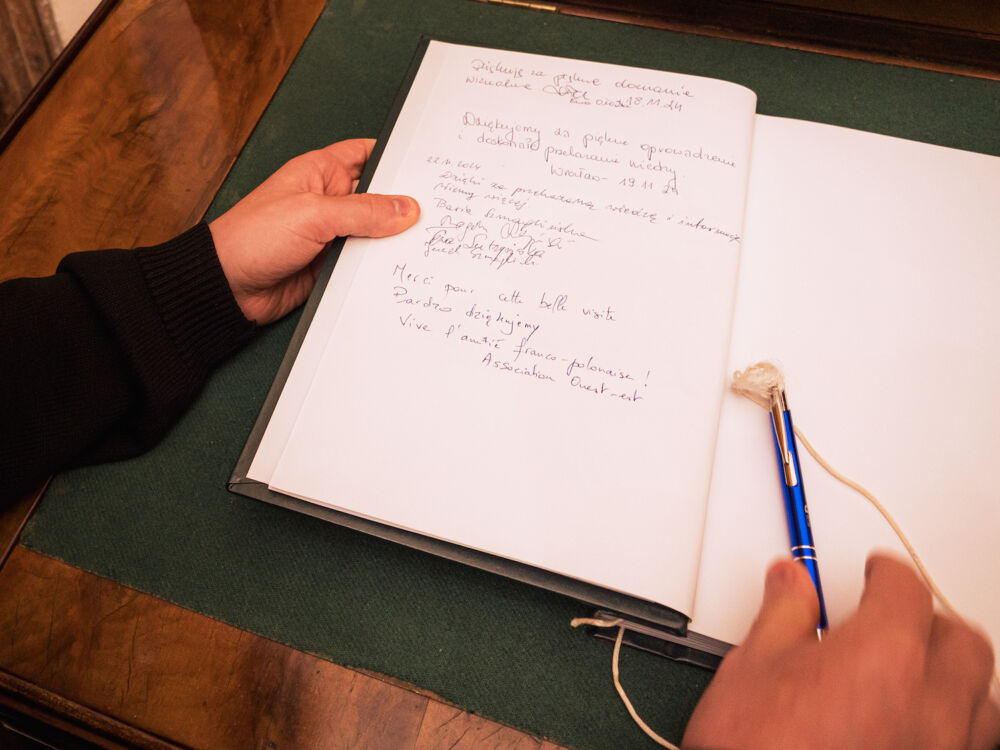 Dziękuję za piękne doznanie
wizualne 18.11.24
Dziękujemy za piękne oprowadzenie
i doskonałe przekazanie wiedzy.
Wrocław - 19.11.24
22.11.2024
Dzięki za przekazaną wiedzę i informacje
Wiemy więcej
Basia
Magda
Merci pour cette belle visite
Bardzo dziękujemy
Vive l'amitié franco-polonaise !
Association Ouest-est